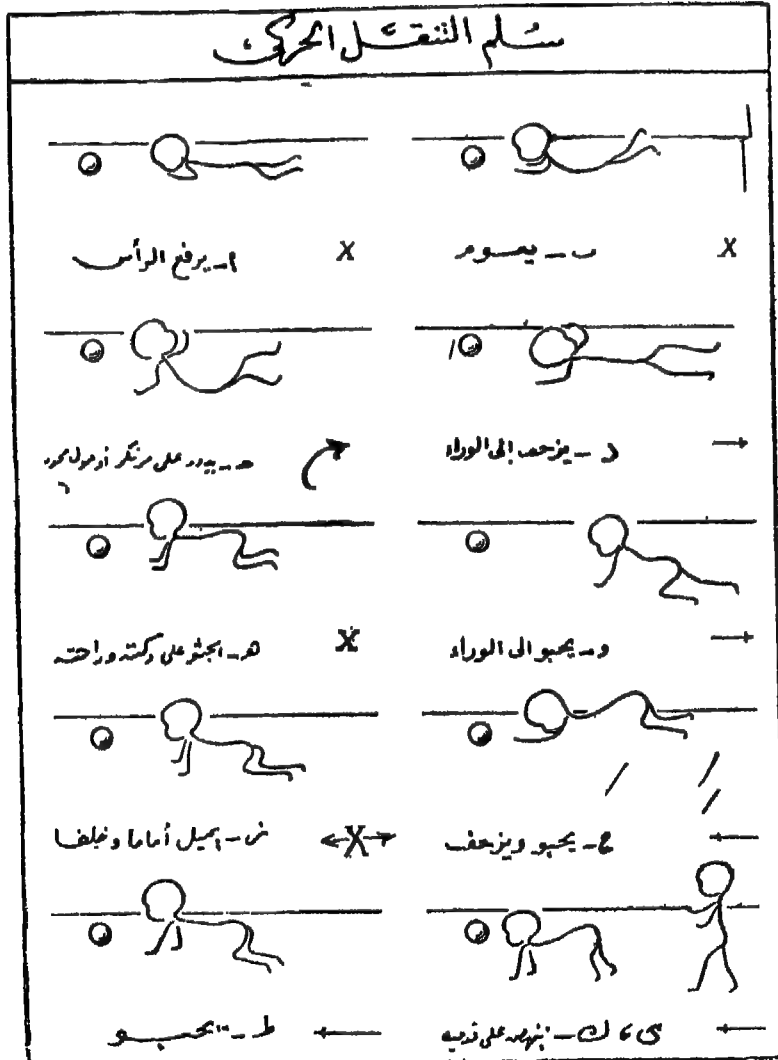 سُلم التنقـَّل الحركي
أ ـ يرفع الرأس X
ب ـ يعسوم X
حـ ـ يدور على مرتكز أو حول محور
د ـ يزحف إلى الوراء
هـ ـ الجثو على ركبته وراحته X
و ـ يحبو الى الوراء
ز ـ يميل أماما وخلفا X
ح ـ يحبو ويزحف
ط ـ يحبـو
ى ، ك ـ ينهض على قدميه